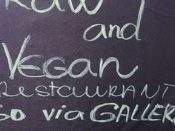 RAW
and
VEGAN
RESTAURANT
GO via GALLER